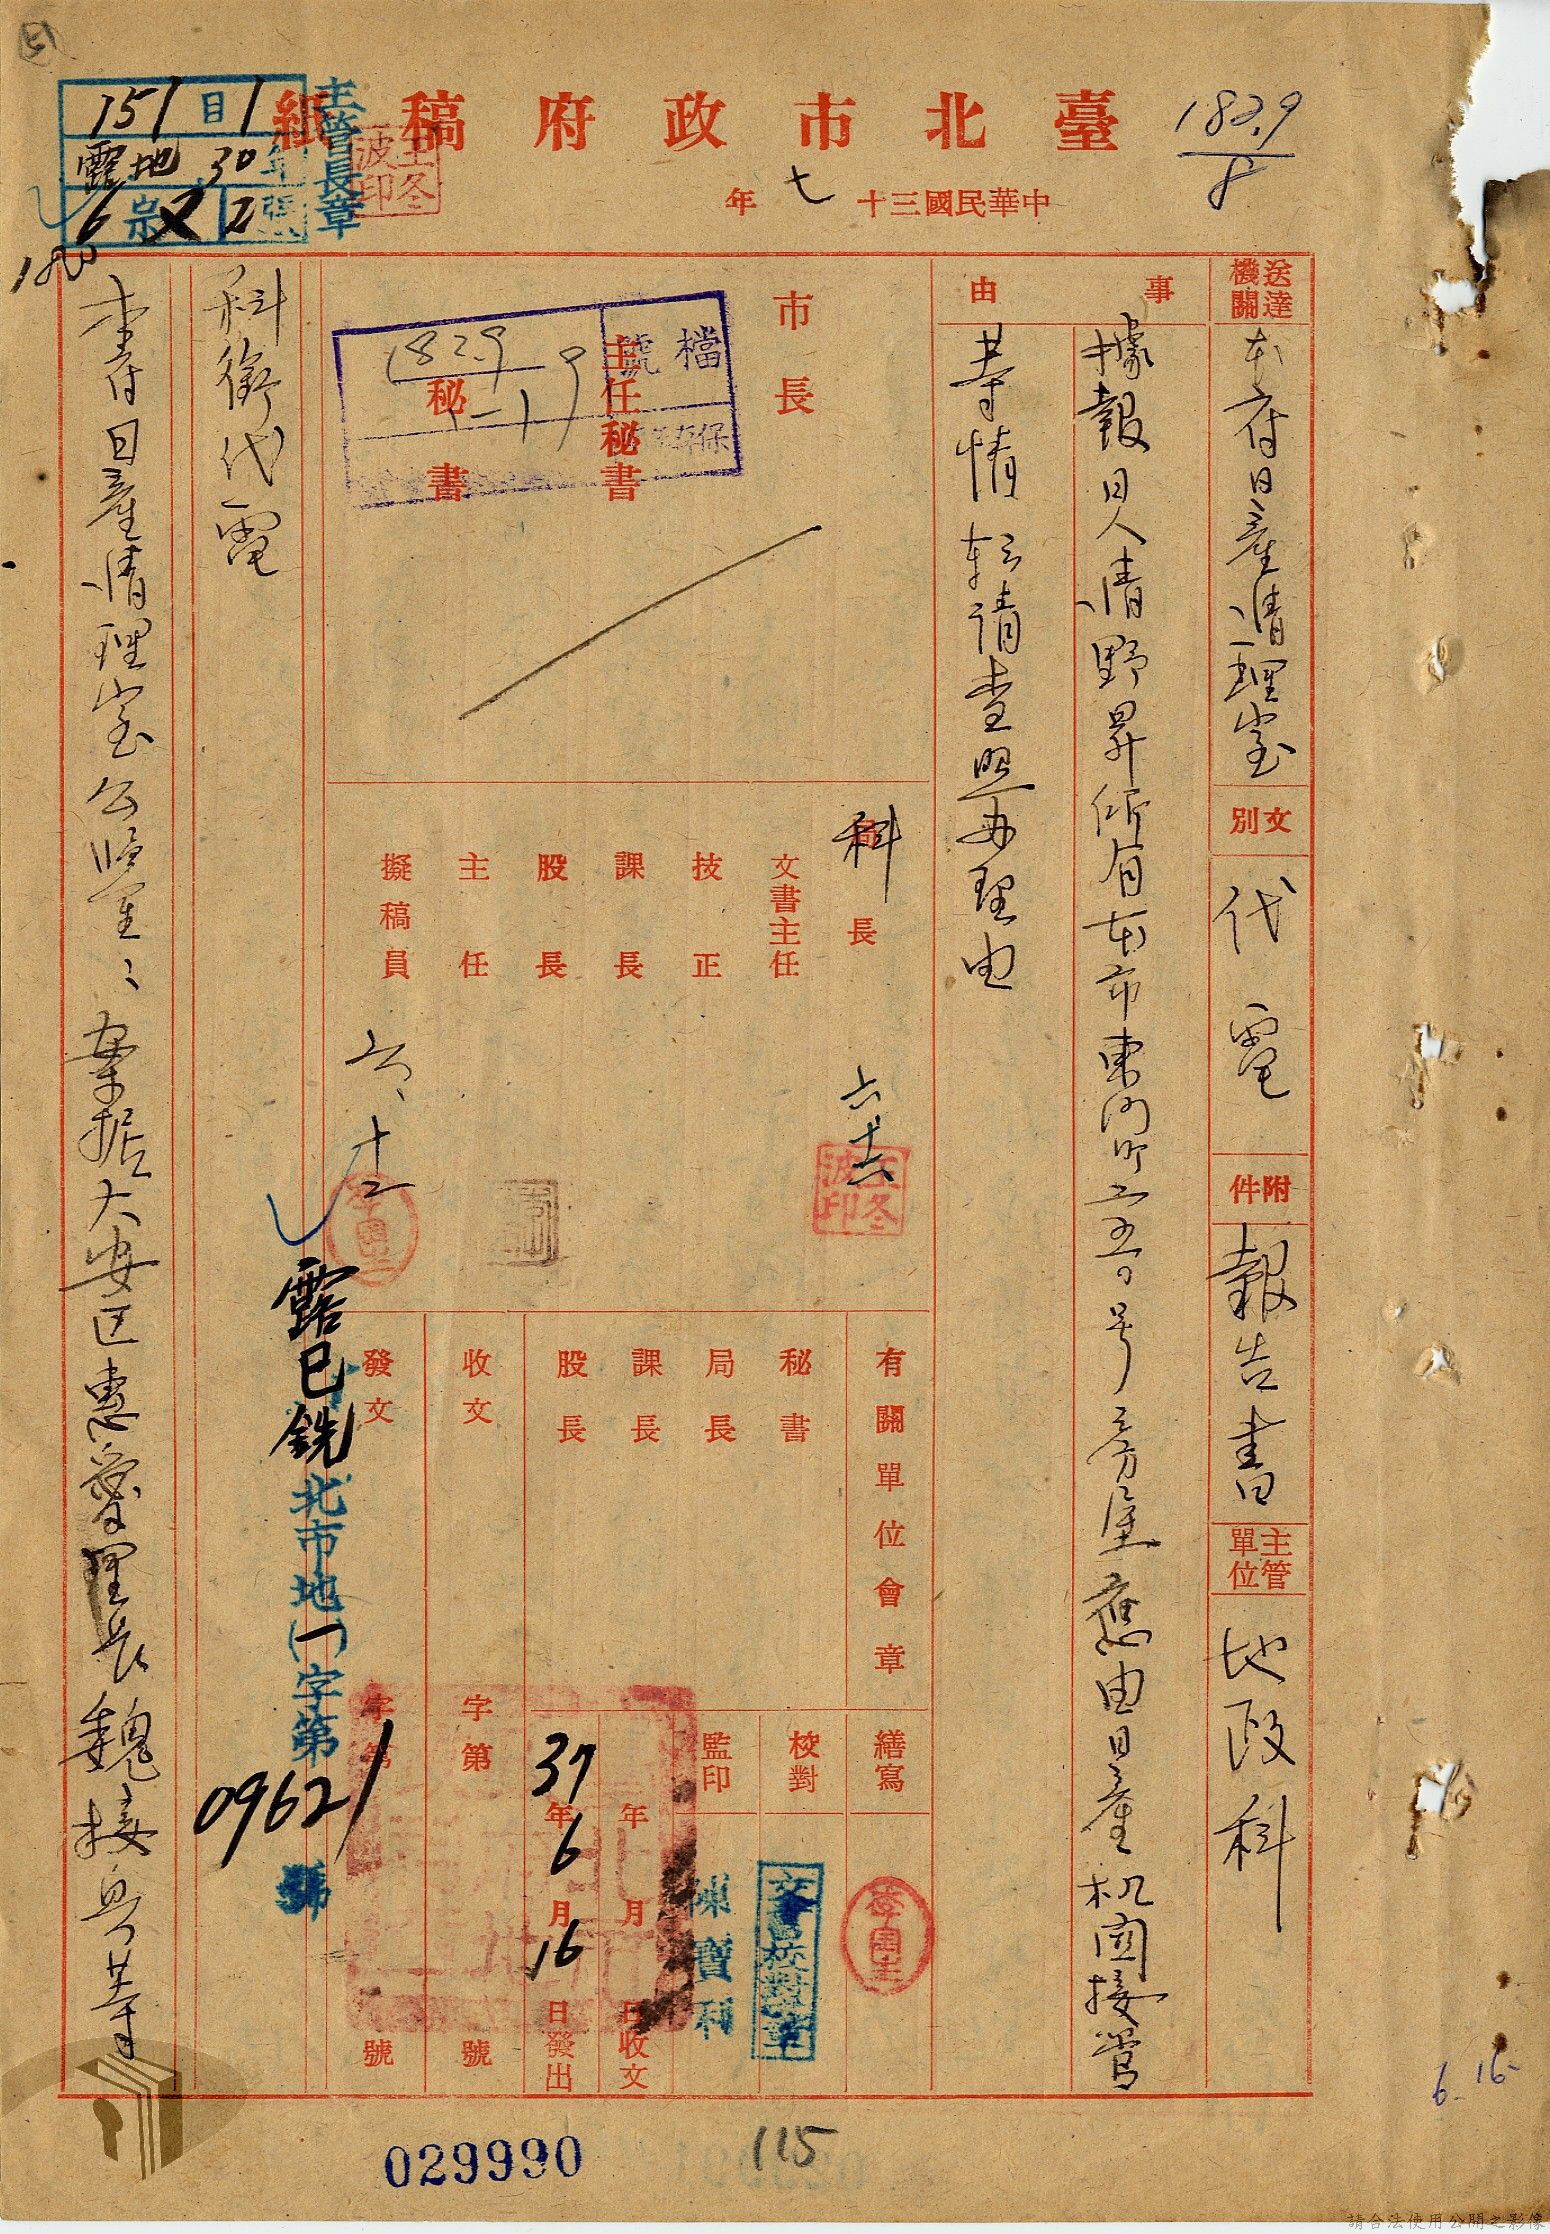 臺北市政府稿紙
中華民國三十七年
182.9
主管長章
王冬波印
151 目 1
地 30 年
6 宗 2 2 張
送達機關
本府日產清理室
文別
代電
附件
報告書
主管單位
地政科
事由
據報日人清野昇所有本市東門町二五〇号房屋應由日產机関接管
等情轉請查照办理由
市長
主任秘書
秘書
檔號
182.9
1-19
保存
科長
六、十六
王冬波印
文書主任
技正
課長
股長
主任
擬稿員
六、十二
有關單位會章
秘書
局長
課長
股長
繕寫
校對
文書校對章
監印
陳寶利
年月日收文
37年6月16日發出
收文 字第 號
發文 字第 號
露巳銑北市地(一)字第09621號
科銜代電
本府日產清理室公鑒:案据大安区惠愛里長魏接與等
029990
115
6.16
請合法使用公開之影像